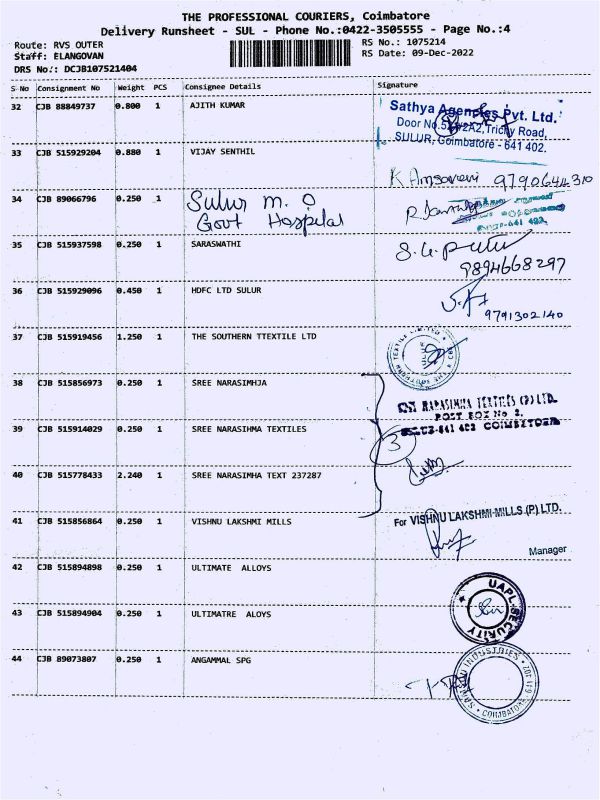 THE PROFESSIONAL COURIERS, Coimbatore
Delivery Runsheet - SUL - Phone No.:0422-3505555 - Page No.:4
Route: RVS OUTER
Staff: ELANGOVAN
DRS No.: DCJB107521404
RS No.: 1075214
RS Date: 09-Dec-2022
S No Consignment No Weight PCS Consignee Details Signature
32 CJB 88849737 0.800 1 AJITH KUMAR
Sathya Agencies Pvt. Ltd.
Door No. Trichy Road,
SULUR, Coimbatore - 641 402.
33 CJB 515929204 0.880 1 VIJAY SENTHIL
9790641310
34 CJB 89066796 0.250 1 Sulur M. O
Govt Hospital
35 CJB 515937598 0.250 1 SARASWATHI
9894668297
36 CJB 515929096 0.450 1 HDFC LTD SULUR
9791302140
37 CJB 515919456 1.250 1 THE SOUTHERN TTEXTILE LTD
38 CJB 515856973 0.250 1 SREE NARASIMHJA
NARASIMHA TEXTILES (P) LTD.
POST BOX No 2,
641 402 COIMBATORE
39 CJB 515914029 0.250 1 SREE NARASIHMA TEXTILES
3
40 CJB 515778433 2.240 1 SREE NARASIMHA TEXT 237287
41 CJB 515856864 0.250 1 VISHNU LAKSHMI MILLS
For VISHNU LAKSHMI MILLS (P) LTD.
Manager
42 CJB 515894898 0.250 1 ULTIMATE ALLOYS
UAPL-SECURITY
43 CJB 515894904 0.250 1 ULTIMATRE ALOYS
44 CJB 89073807 0.250 1 ANGAMMAL SPG
INDUSTRIES
COIMBATORE